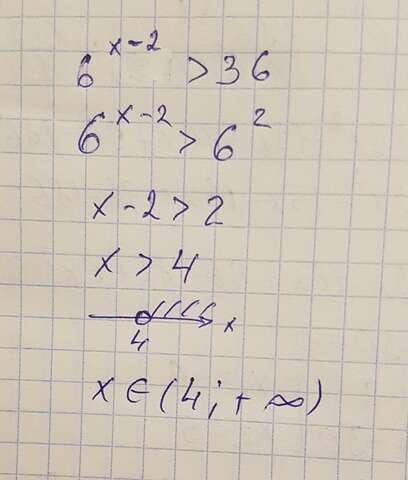 6^{x-2} > 36
6^{x-2} > 6^2
x - 2 > 2
x > 4
x
4
x ∈ (4; + ∞)